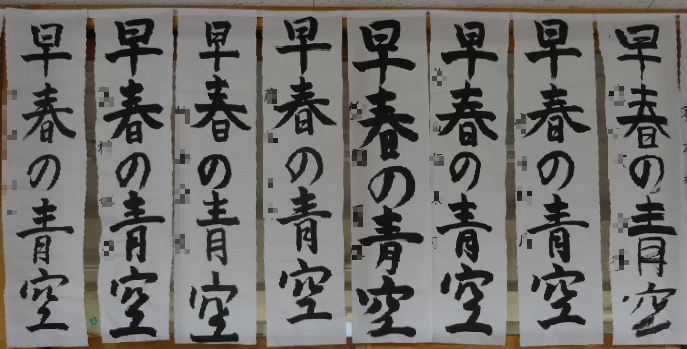 早春の青空
早春の青空
早春の青空
早春の青空
早春の青空
早春の青空
早春の青空
早春の青空